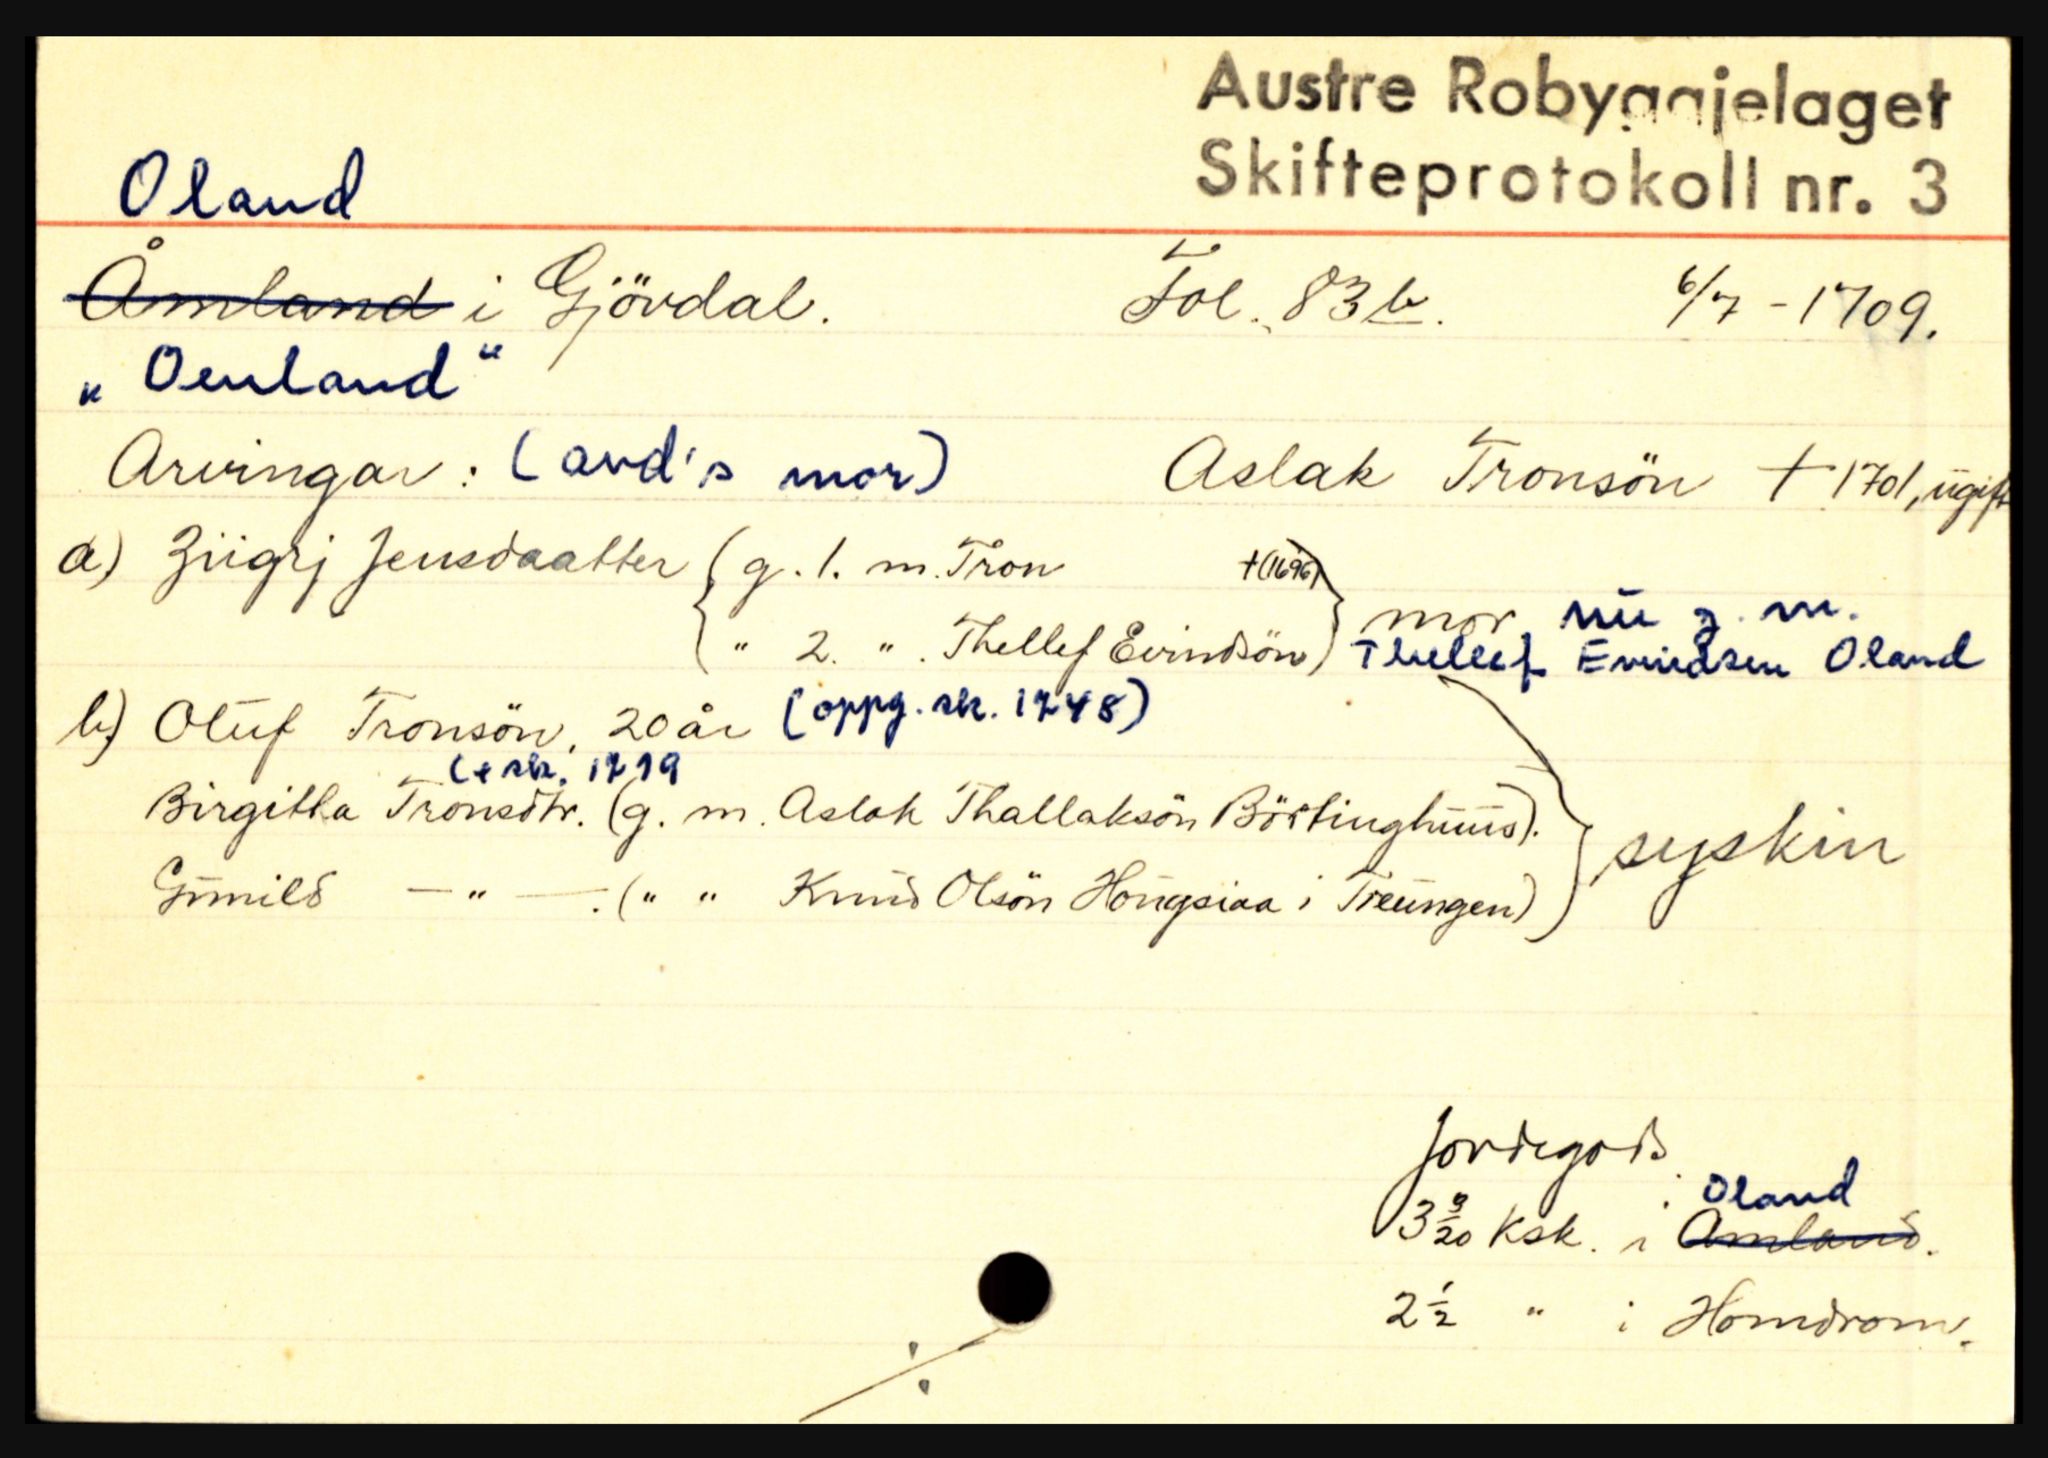 Austre Robyggjelaget
Skifteprotokoll nr. 3
Oland
Åmland i Gjövdal. Fol. 83 b. 6/7 - 1709.
„ Oenland “
Arvingar : (avd's mor) Aslak Tronsön † 1701, ugift
a) Ziigrj Jensdaatter (g. 1. m. Tron †(1696)
„ 2. „ . Thellef Evindsön) mor nu g. m.
Thellef Evindsen Oland
b) Oluf Tronsön, 20 år (oppg. sk. 1748)
(+ sk. 1719
Birgitta Tronsdtr. (g. m. Aslak Thallaksön Börtinghuus).
Gunild — „ — . („ „ Knud Olsön Hougsiaa i Treungen) syskin
Jordegods
Oland
3 9/20 Ksk. i Åmland.
2 1/2 „ i Homdrom.
./.